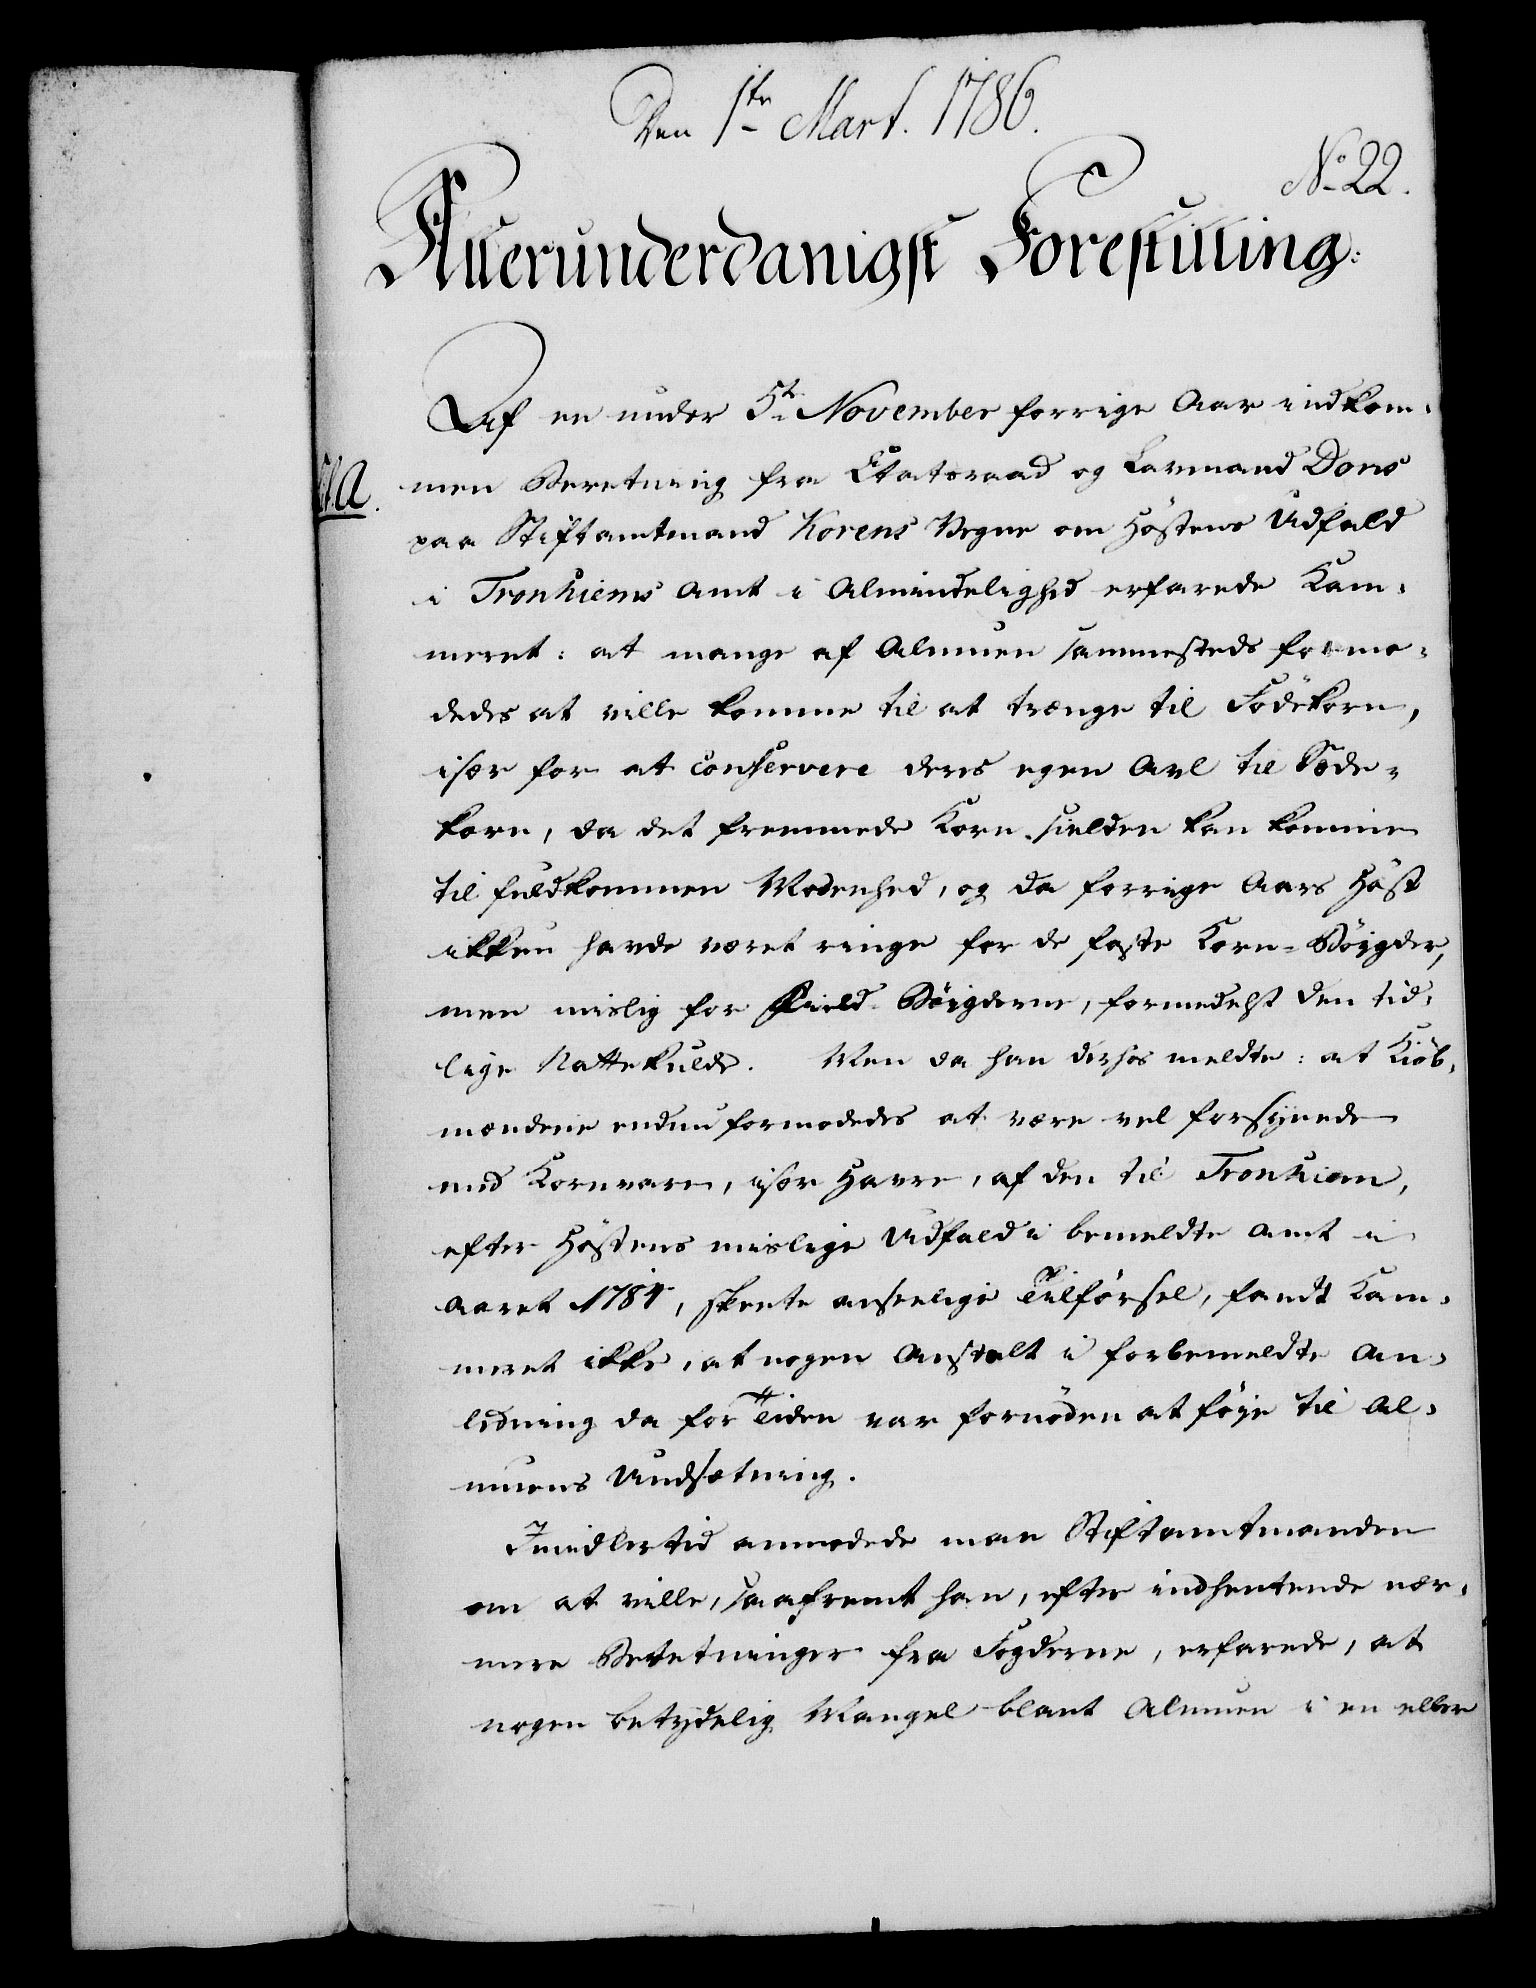 Den 1te Mart. 1786.
No 22.
Allerunderdanigst Forestilling:
Af en under 5te November forrige Aar indkom-
Lit. A.
men Beretning fra Etatsraad og Laumand Dons
paa Stiftamtmand Korens Vegne om Høstens Udfald
i Tronhiems Amt i Almindelighed erfarede Kam-
meret: at mange af Almuen sammesteds formo-
dedes at ville komme til at trænge til Födekorn,
især for at conservere deres egen Avl til Sæde-
korn, da det fremmede Korn sielden kan komme
til fuldkommen Modenhed, og da forrige Aars Høst
ikkun havde været ringe for de faste Korn-Böigder,
men mislig for Field-Böigderne, formedelst den tid-
lige Nattekulde. Men da han derhos meldte: at Kiöb-
mændene endnu formodedes at være vel forsynede
med Kornvare, især Havre, af den til Tronhiem,
efter Høstens mislige Udfald i bemeldte Amt i
Aaret 1784, skeete anseelige Tilförsel, fandt Kam-
meret ikke, at nogen Anstalt i forbemeldte An-
ledning da for Tiden var fornöden at föye til Al-
muens Undsætning.
Imidlertid anmodede man Stiftamtmanden
om at ville, saafremt han, efter indhentende nær-
mere Beretninger fra Fogderne, erfarede, at
nogen betydelig Mangel blant Almuen i en eller